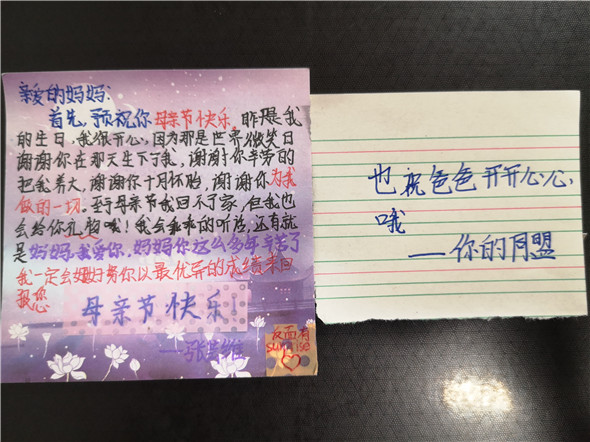 亲爱的妈妈:
首先,预祝你母亲节快乐。昨天是我
的生日,我很开心,因为那是世界微笑日
谢谢你在那天生下了我,谢谢你辛劳的
把我养大,谢谢你十月怀胎,谢谢你为我
做的一切。至于母亲节我回不了家,但我也
会给你礼物哦!我会乖乖的听话,还有就
是妈妈,我爱你,妈妈你这么多年辛苦了
我一定会好好努力以最优异的成绩来回
报您
母亲节快乐!
—张
反面有
也祝爸爸开开心心
哦!
——你的同盟